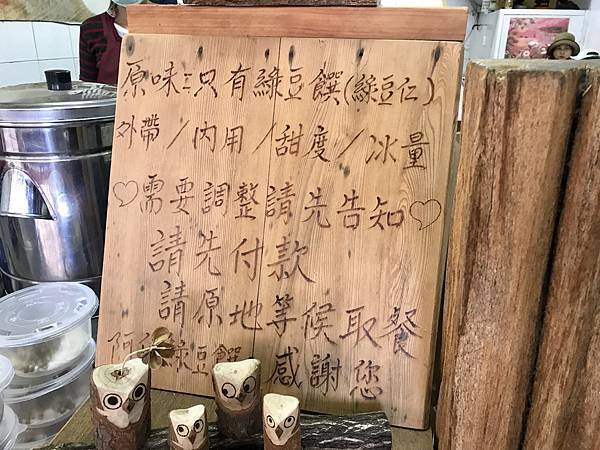 原味=只有綠豆饌(綠豆仁)
外帶/內用/甜度/冰量
♡需要調整請先告知♡
請先付款
請原地等候取餐
綠豆饌 感謝您